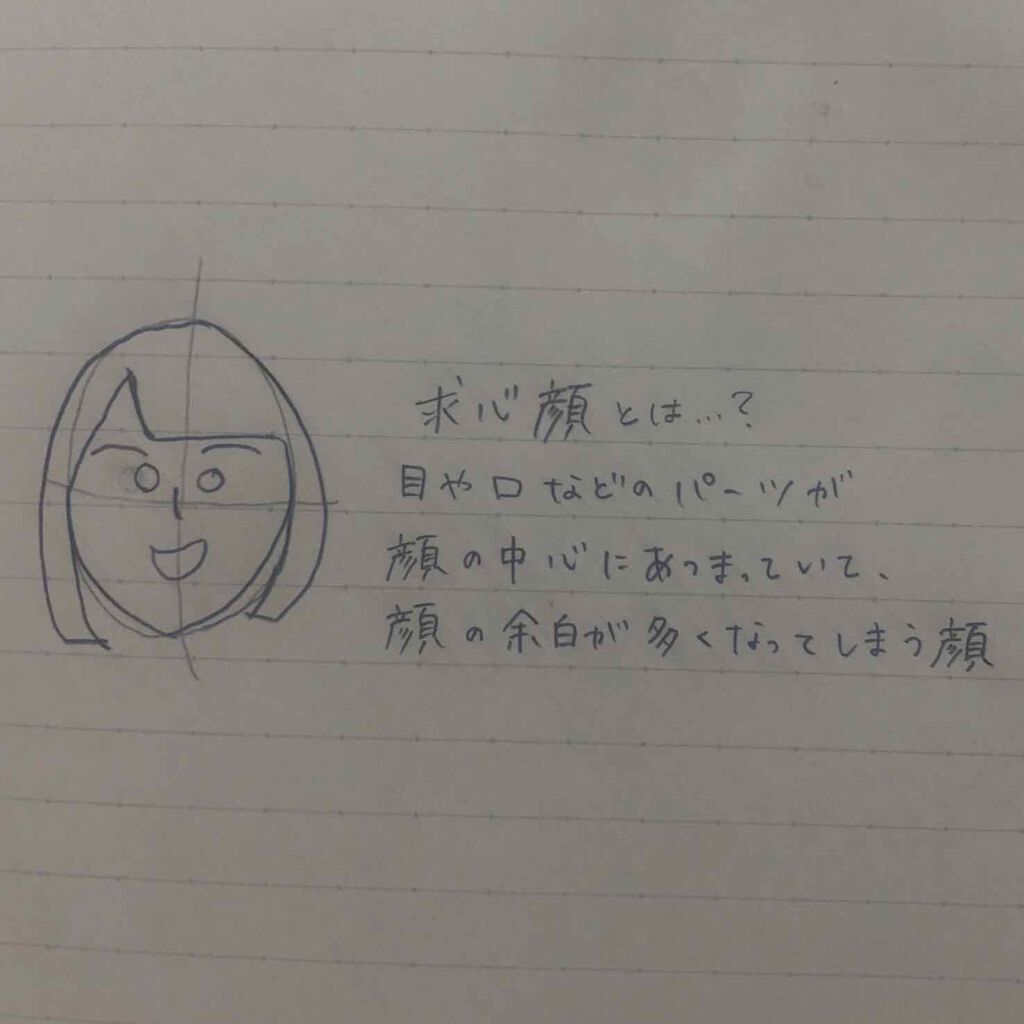 求心顔とは...?
目や口などのパーツが
顔の中心にあつまっていて、
顔の余白が多くなってしまう顔